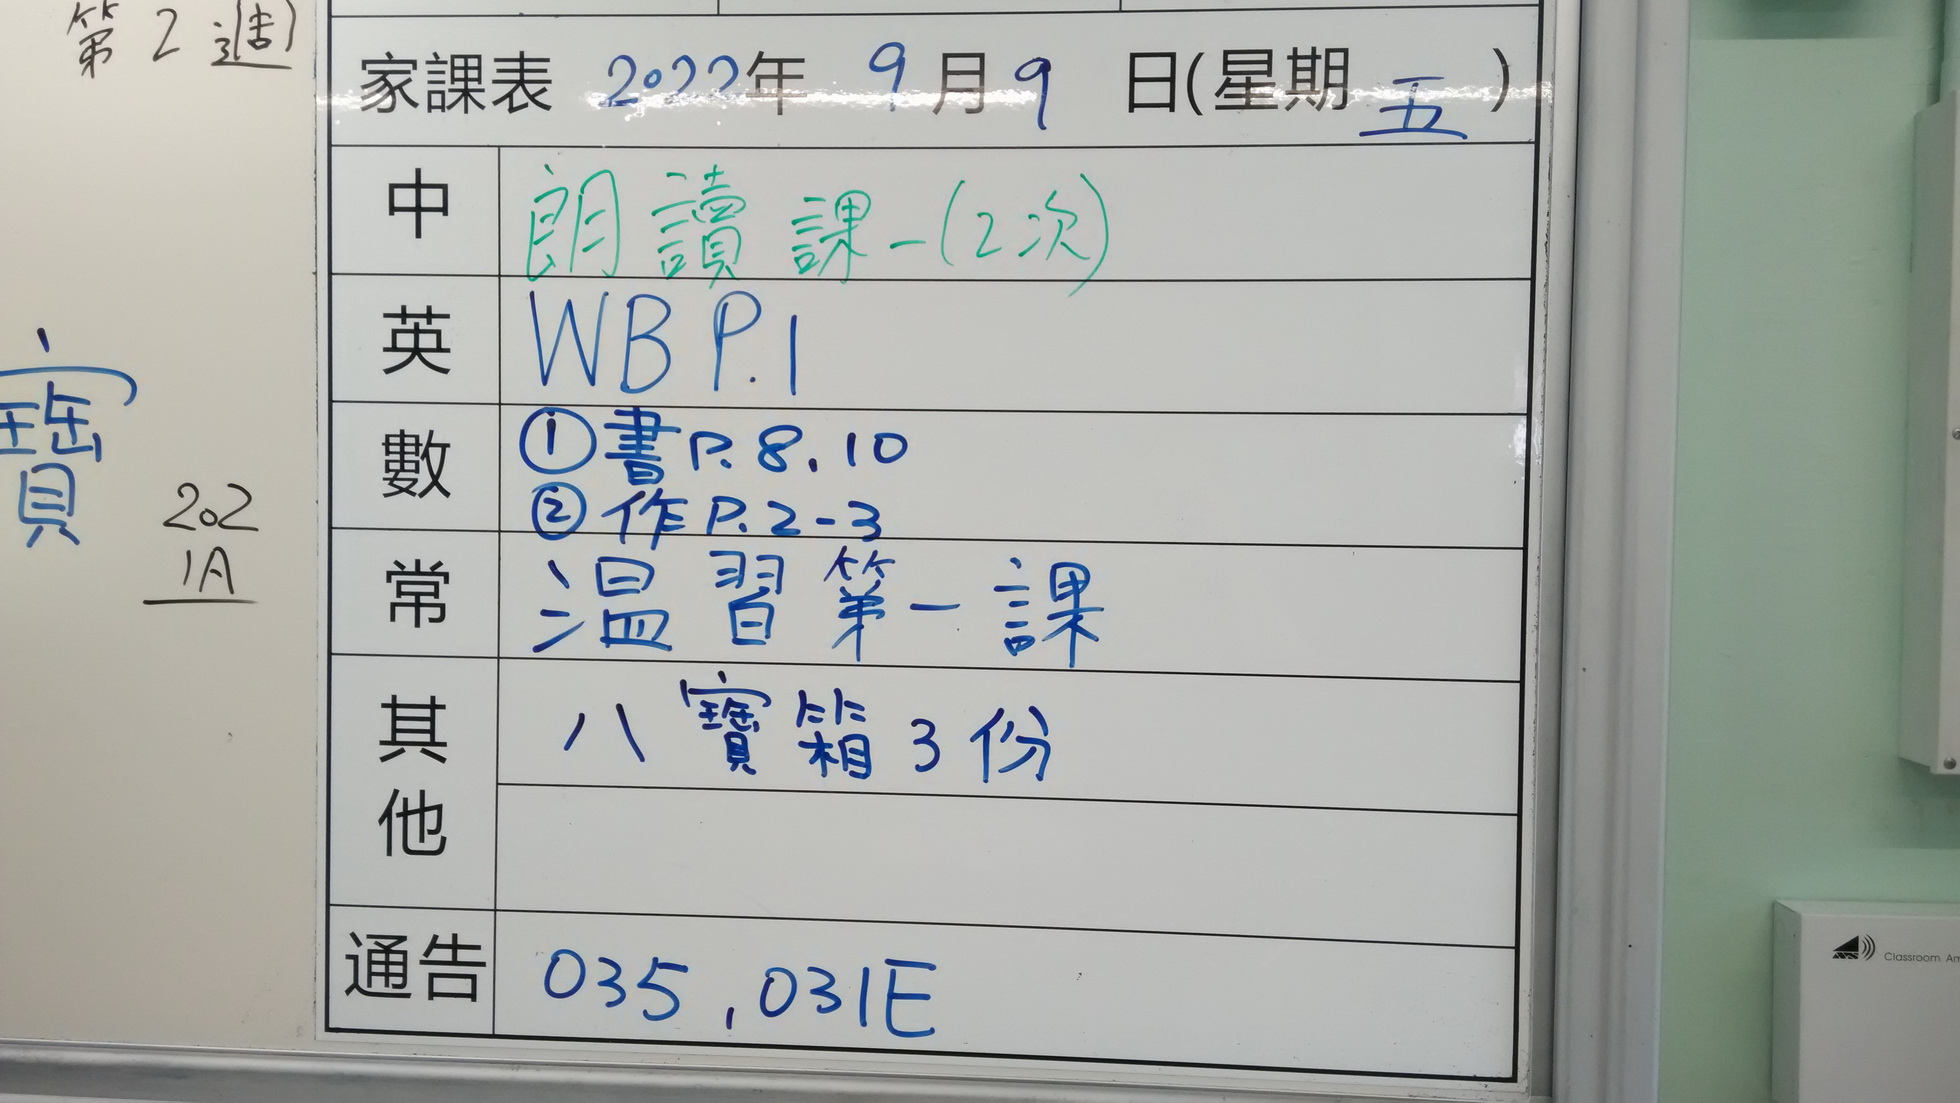 第2週
家課表 2022年 9月9日(星期五)
中 朗讀課一(2次)
英 WB P.1
數 ①書P.8.10
②作P.2-3
常 温習第一課
其他 八寶箱3份
通告 035,031E
寶
202
1A
Classroom Am